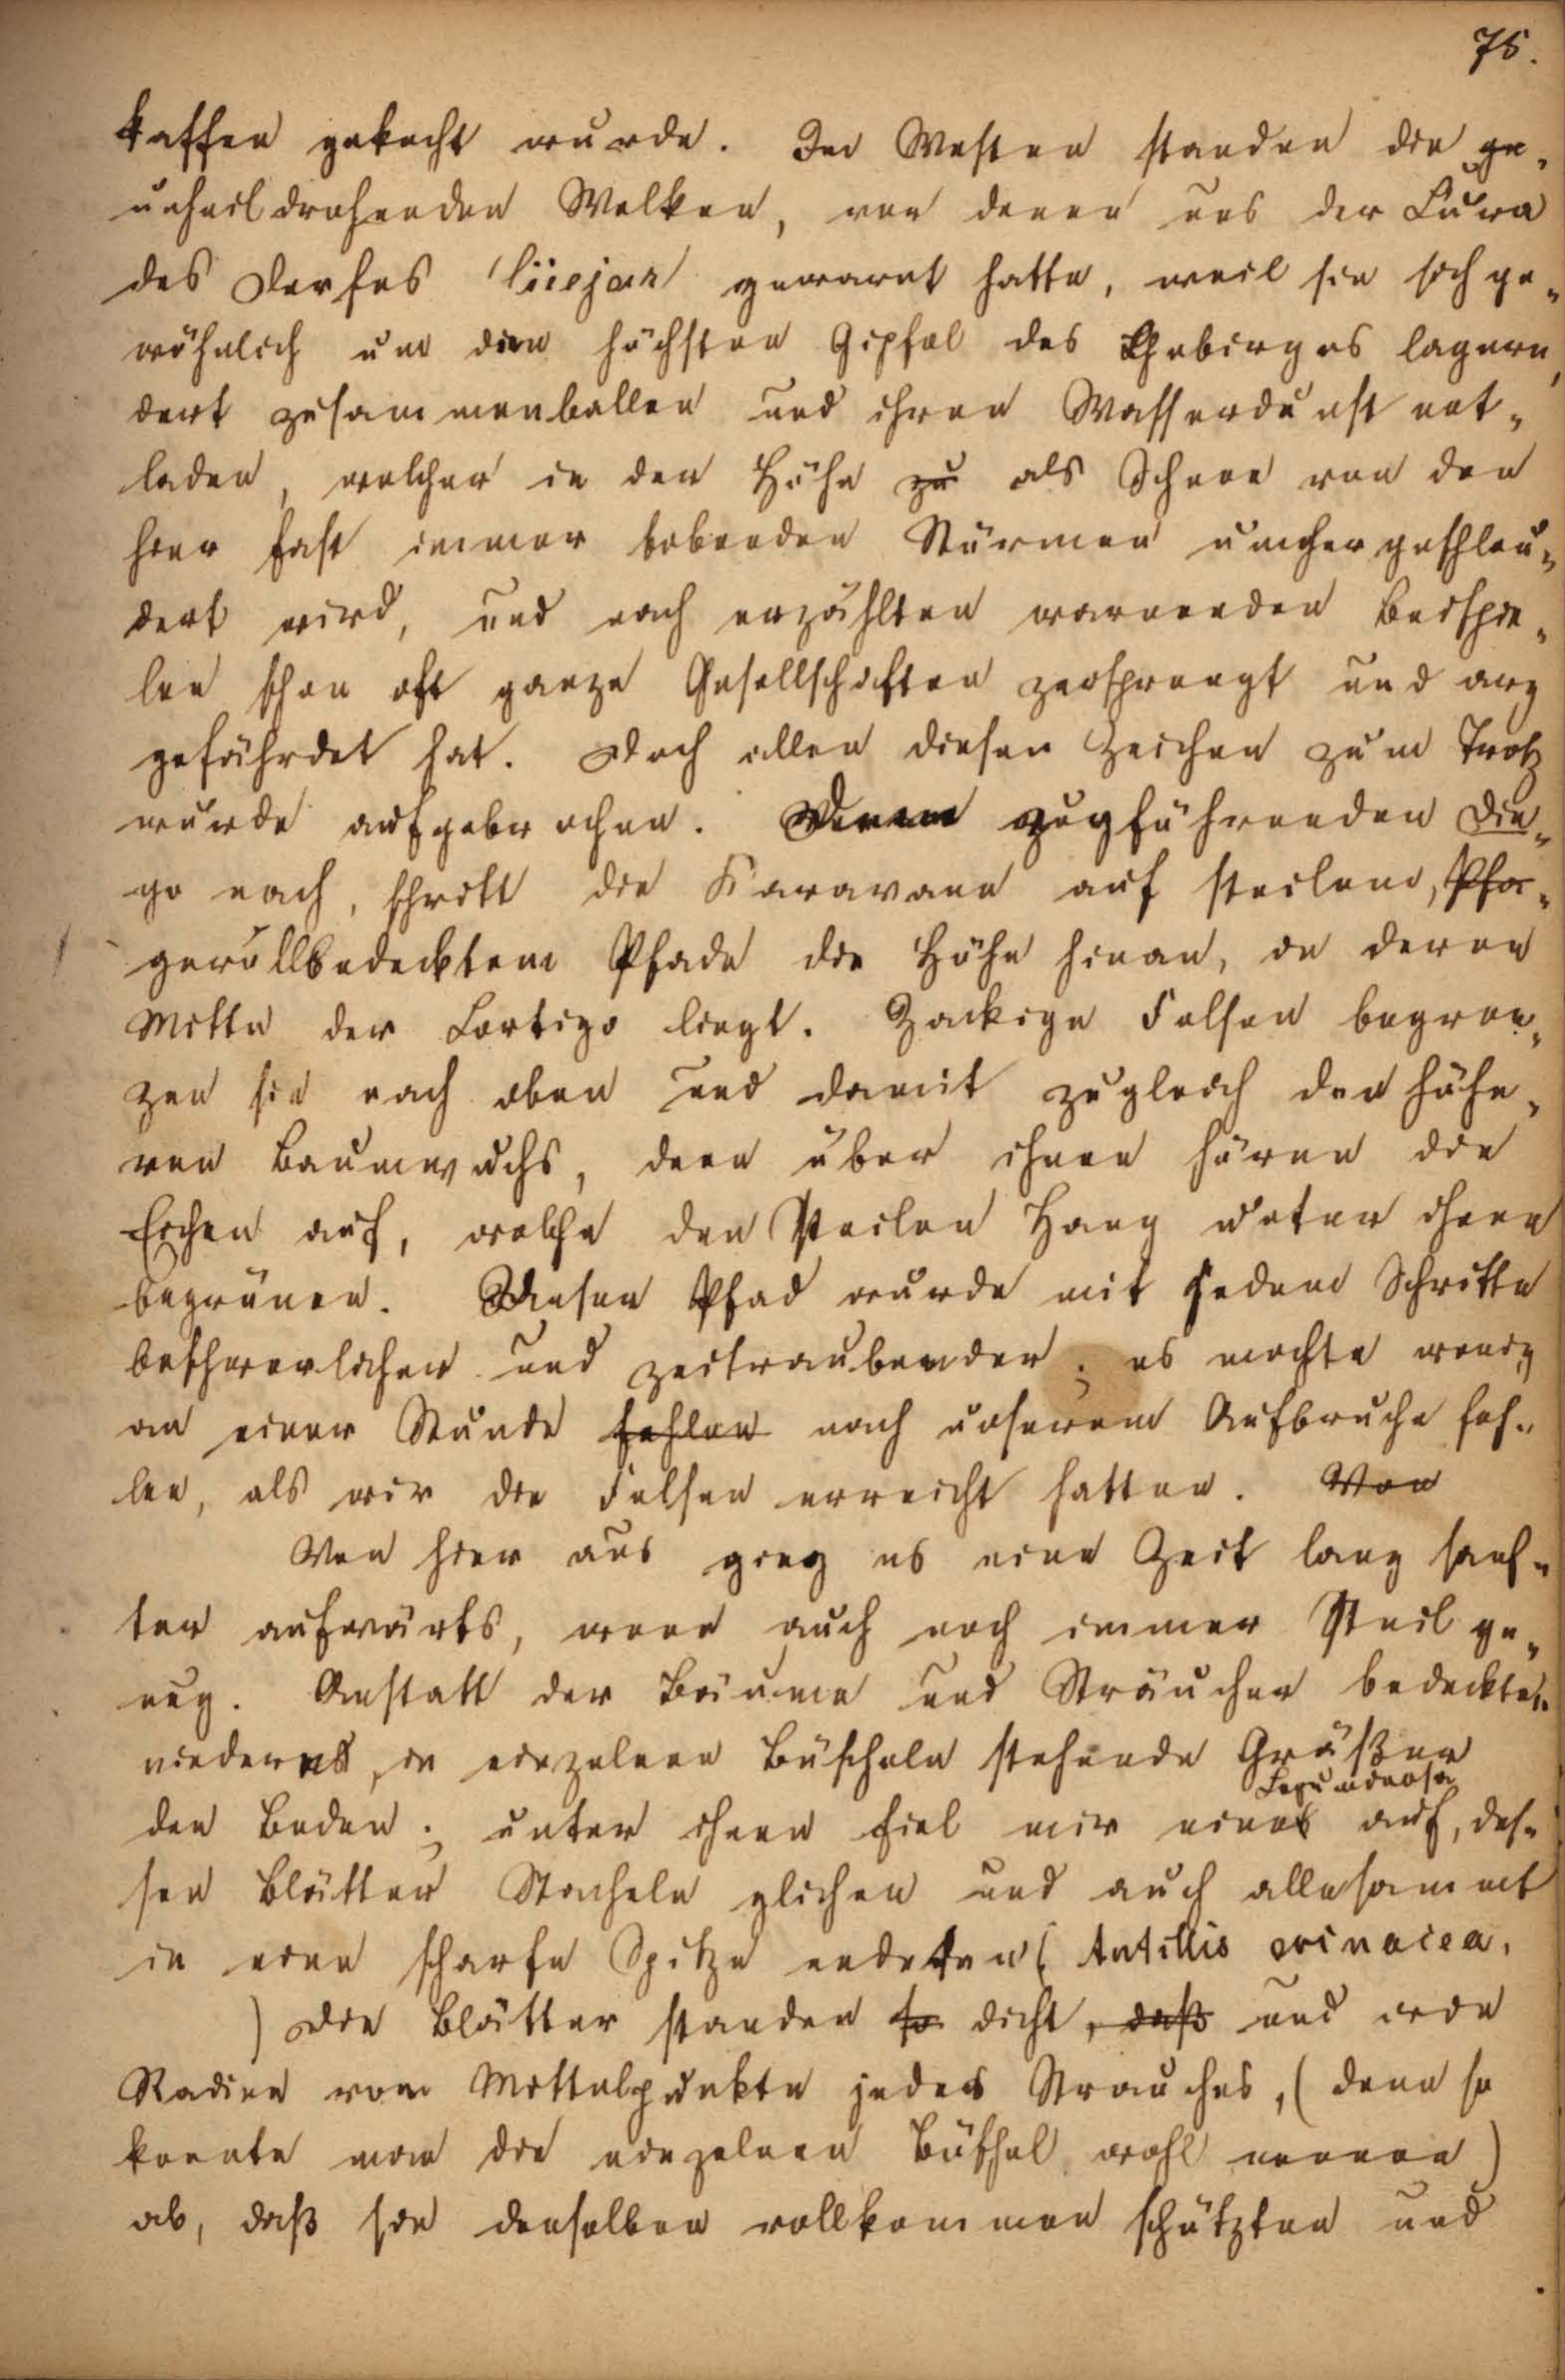 75.
Kaffee gekocht wurde. Im Westen standen die ge-
unheildrohenden Wolken, von denen uns der Cura
des Dorfes Güejar gewarnt hatte, weil sie sich ge-
wöhnlich um den höchsten Gipfel des Gebirges lagern,
dort zusammenballen und ihren Wasserdunst ent-
laden, welcher in der Höhe zu als Schnee von den
hier fast immer tobenden Stürmen umhergeschleu-
dert wird, und nach erzählten warnenden Beispie-
len schon oft ganze Gesellschaften zersprengt und arg
gefährdet hat. Doch allen diesen Zeichen zum Trotz
wurde aufgebrochen. Dem zugführenden Die-
go nach, schritt die Karavane auf steilem, Pfa-
geröllbedecktem Pfade die Höhe hinan, in deren
Mitte der Cortijo liegt. Zackige Felsen begren-
zen sie nach oben und damit zugleich den höhe-
ren Baumwuchs, denn über ihnen hören die
Eichen auf, welche den steilen Hang unter ihnen
begrünen. Dieser Pfad wurde mit jedem Schritte
beschwerlicher und zeitraubender; es mochte wenig
an einer Stunde fehlen nach unserem Aufbruche feh-
len, als wir die Felsen erreicht hatten. Von
Von hier aus ging es eine Zeit lang sanf-
ter aufwärts, wenn auch noch immer steil ge-
nug. Anstatt der Bäume und Sträucher bedeckten
niedere, in einzelnen Büscheln stehende Gräßer
Leguminose
den Boden; unter ihnen fiel mir eines auf, des-
sen Blätter Stacheln glichen und auch allesammt
in eine scharfe Spitze endeten (Antillis erinacea.
) Die Blätter standen so dicht, daß und wie
Radien vom Mittelpunkte jedes Strauches, (denn so
konnte man die einzelnen Büschel wohl nennen)
ab, daß sie denselben vollkommen schützten und